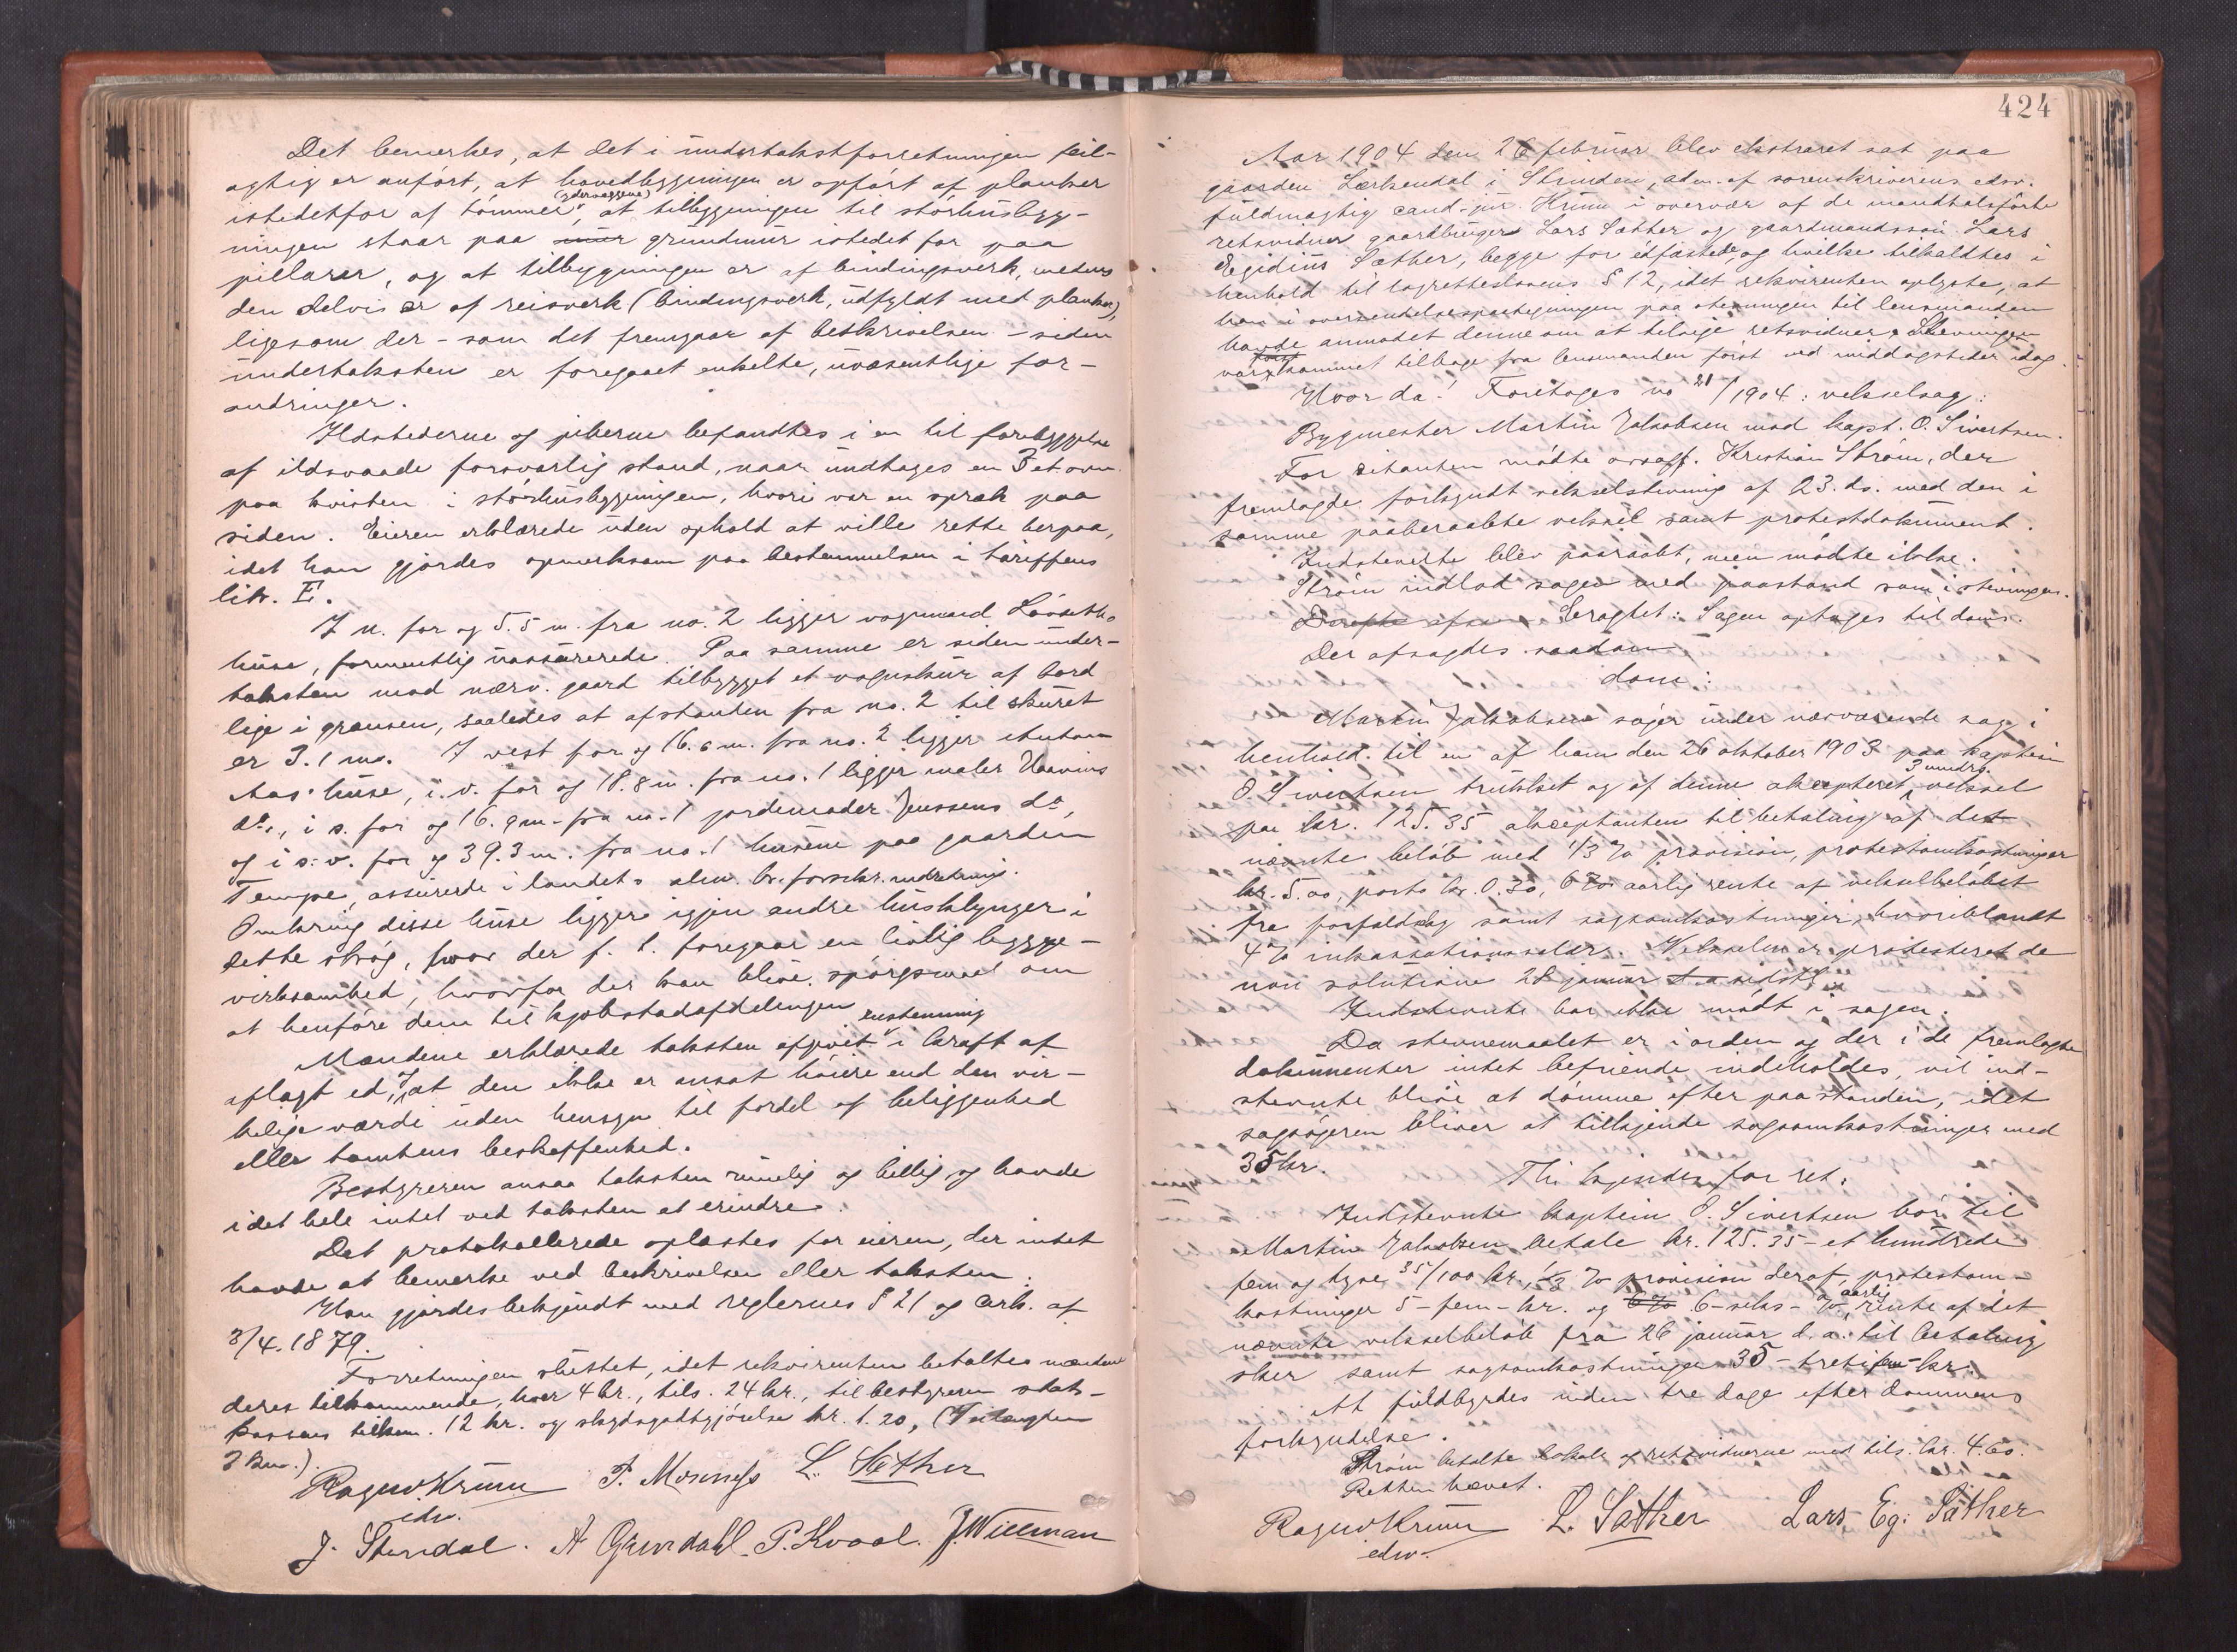 Det bemerkes, at det i undertakstforretningen feil-
agtig er anført, at hovedbygningen er opført af planker
istedetfor af tømmer (ydervæggene), at tilbygningen til størhusbyg-
ningen staar paa mur grundmur istedet for paa
pillarer, og at tilbygningen er af bindingsverk, medens
den delvis er af reisverk (bindingsverk, udfyldt med planker),
ligesom der - som det fremgaar af beskrivelsen - siden
undertaksten er foregaaet enkelte, uvæsentlige for-
andringer.
Ildstederne og piberne befandtes i en til forebyggelse
af ildsvaade forsvarlig stand, naar undtages en 3 et. ovn
paa kvisten i størhusbygningen, hvori var en spræk paa
siden. Eieren erklærede uden ophold at ville rette herpaa,
idet han gjordes opmerksom paa bestemmelsen i tariffens
litr. E.
I n. for og 5.5 m. fra no. 2 ligger vognmand
huse, formentlig uassurerede. Paa samme er siden under-
taksten mod nærv. gaard tilbygget et vognskur af bord
lige i grænsen, saaledes at afstanden fra no. 2 til skuret
er 3.1 m. I vest for og 16.6 m. fra no. 2 ligger
Aas' huse, i v. for og 18.8 m. fra no. 1 ligger maler
do., i s. for og 16.9 m. fra no. 1 jordemoder Jenssens do,
og i s.v. for og 39.3 m. fra no. 1 husene paa gaarden
Tempe, assurerede i landets alm. br. forsikr. indretning.
Omkring disse huse ligger igjen andre husklynger i
dette strøg, hvor der f. t. foregaar en livlig bygge-
virksomhed, hvorfor der kan blive spørgsmaal om
at henføre dem til kjøbstadafdelingen
Mændene erklærede taksten afgivet enstemmig i kraft af
aflagt ed, og at den ikke er ansat høiere end den vir-
kelige værdi uden hensyn til fordel af beliggenhed
eller tomtens beskaffenhed.
Bestyreren ansaa taksten rimelig og billig og havde
i det hele intet ved taksten at erindre.
Det protokollerede oplæstes for eieren, der intet
havde at bemerke ved beskrivelsen eller taksten.
Han gjordes bekjendt med reglernes § 21 og cirk. af
3/4. 1879.
Forretningen sluttet, idet rekvirenten betaltes mændene
deres tilkommende, hver 4 kr., tils. 24 kr., til bestyreren stats-
kassens tilkom. 12 kr. og skydsgodtgjørelse kr. 1.20,
Ragnv Krum P. Mosness L. Sæther
edsv.
J. Stendal. A Grendahl. P. Kvaal. J. Willman
424
Aar 1904 den 26 februar blev ekstraret sat paa
gaarden Lerkendal i Strinden, adm. af sorenskriverens edsv.
fuldmægtig cand. jur. Krum i overvær af de mandtalsførte
retsvidner gaardbruger Lars Sæther og gaardmandssøn Lars
Egidius Sæther, begge for edfæstede, og hvilke tilkaldtes i
henhold til lagretteslovens § 12, idet rekvirenten oplyste, at
han i oversendelsespaategningen paa stevningen til lensmanden
havde anmodet denne om at tilsige retsvidner. Stevningen
var først kommet tilbage fra lensmanden først ved middagstider idag.
Hvor da: Foretoges no 21/1904: vekselsag:
Bygmester Martin Jakobsen mod kapt. O. Sivertsen.
For citanten mødte ovsagf. Kristian Strøm, der
fremlagde forkyndt vekselstevning af 23. ds. med den i
samme paaberaabte veksel samt protestdokument.
Indstevnte blev paaraabt, men mødte ikke.
Strøm indlod sagen med paastand som i stevningen.
Derefter afsa Eragtet: Sagen optages til doms.
Der afsagdes saadan
dom:
Martin Jakobsen søger under nærværende sag i
henhold til en af ham den 26 oktober 1903 paa kaptein
O. Sivertsen trukket og af denne akcepteret 3 mndrs. veksel
paa kr. 125.35 akceptanten til betaling af det
nævnte beløb med 1/3 % provision, protestomkostninger
kr. 5.00, porto kr. 0.30, 6 % aarlig rente af vekselbeløbet
fra forfaldsdag samt sagsomkostninger, hvoriblandt
4 % inkassationssalær. Vekselen er protesteret de
non solutione 28 januar d. a. sidstl.
Indstevnte har ikke mødt i sagen.
Da stevnemaalet er i orden og der i de fremlagte
dokumenter intet befriende indeholdes, vil ind-
stevnte blive at dømme efter paastanden, idet
sagsøgeren bliver at tilkjende sagsomkostninger med
35 kr.
Thi kjendes for ret:
Indstevnte kaptein O. Sivertsen bør til
Martin Jakobsen betale kr. 125.35 - et hundrede
fem og tyve 35/100 kr., 1/3 % provision deraf, protestom-
kostninger 5 - fem - kr. og 6 % 6 - seks - % aarlig rente af det
nævnte vekselbeløb fra 26 januar d. a. til betaling
sker samt sagsomkostninger 35 - treti fem - kr.
At fuldbyrdes inden tre dage efter dommens
forkyndelse.
Strøm betalte lokale og retsvidnerne med tils. kr. 4.60.
Retten hævet.
Ragnv Krum L. Sæther Lars Eg. Sæther
edsv.